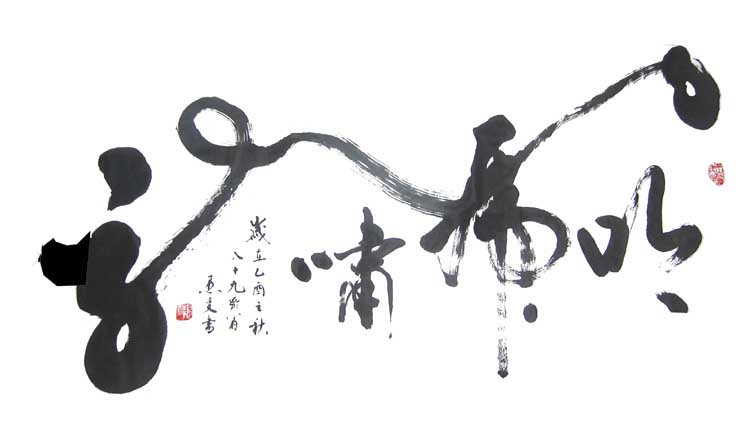 龍吟虎嘯
歲立乙酉之秋
八十九歲翁
書